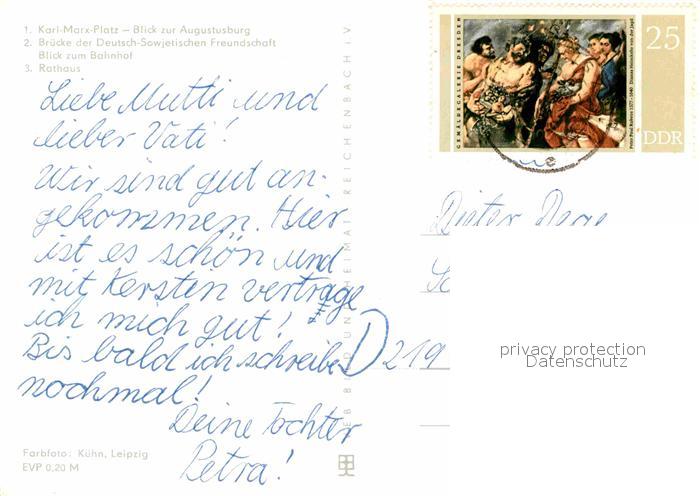 1. Karl-Marx-Platz — Blick zur Augustusburg
2. Brücke der Deutsch-Sowjetischen Freundschaft
Blick zum Bahnhof
3. Rathaus
Liebe Mutti und
lieber Vati!
Wir sind gut an-
gekommen. Hier
ist es schön und
mit Kersten vertrage
ich mich gut!
Bis bald ich schreibe
nochmal!
Deine Tochter
Petra!
Farbfoto: Kühn, Leipzig
EVP 0,20 M
VEB BILD UND HEIMAT REICHENBACH I V
D 219
GEMÄLDEGALERIE DRESDEN
Peter Paul Rubens 1577-1640 Dianas Heimkehr von der Jagd
25
DDR
Dieter
privacy protection
Datenschutz